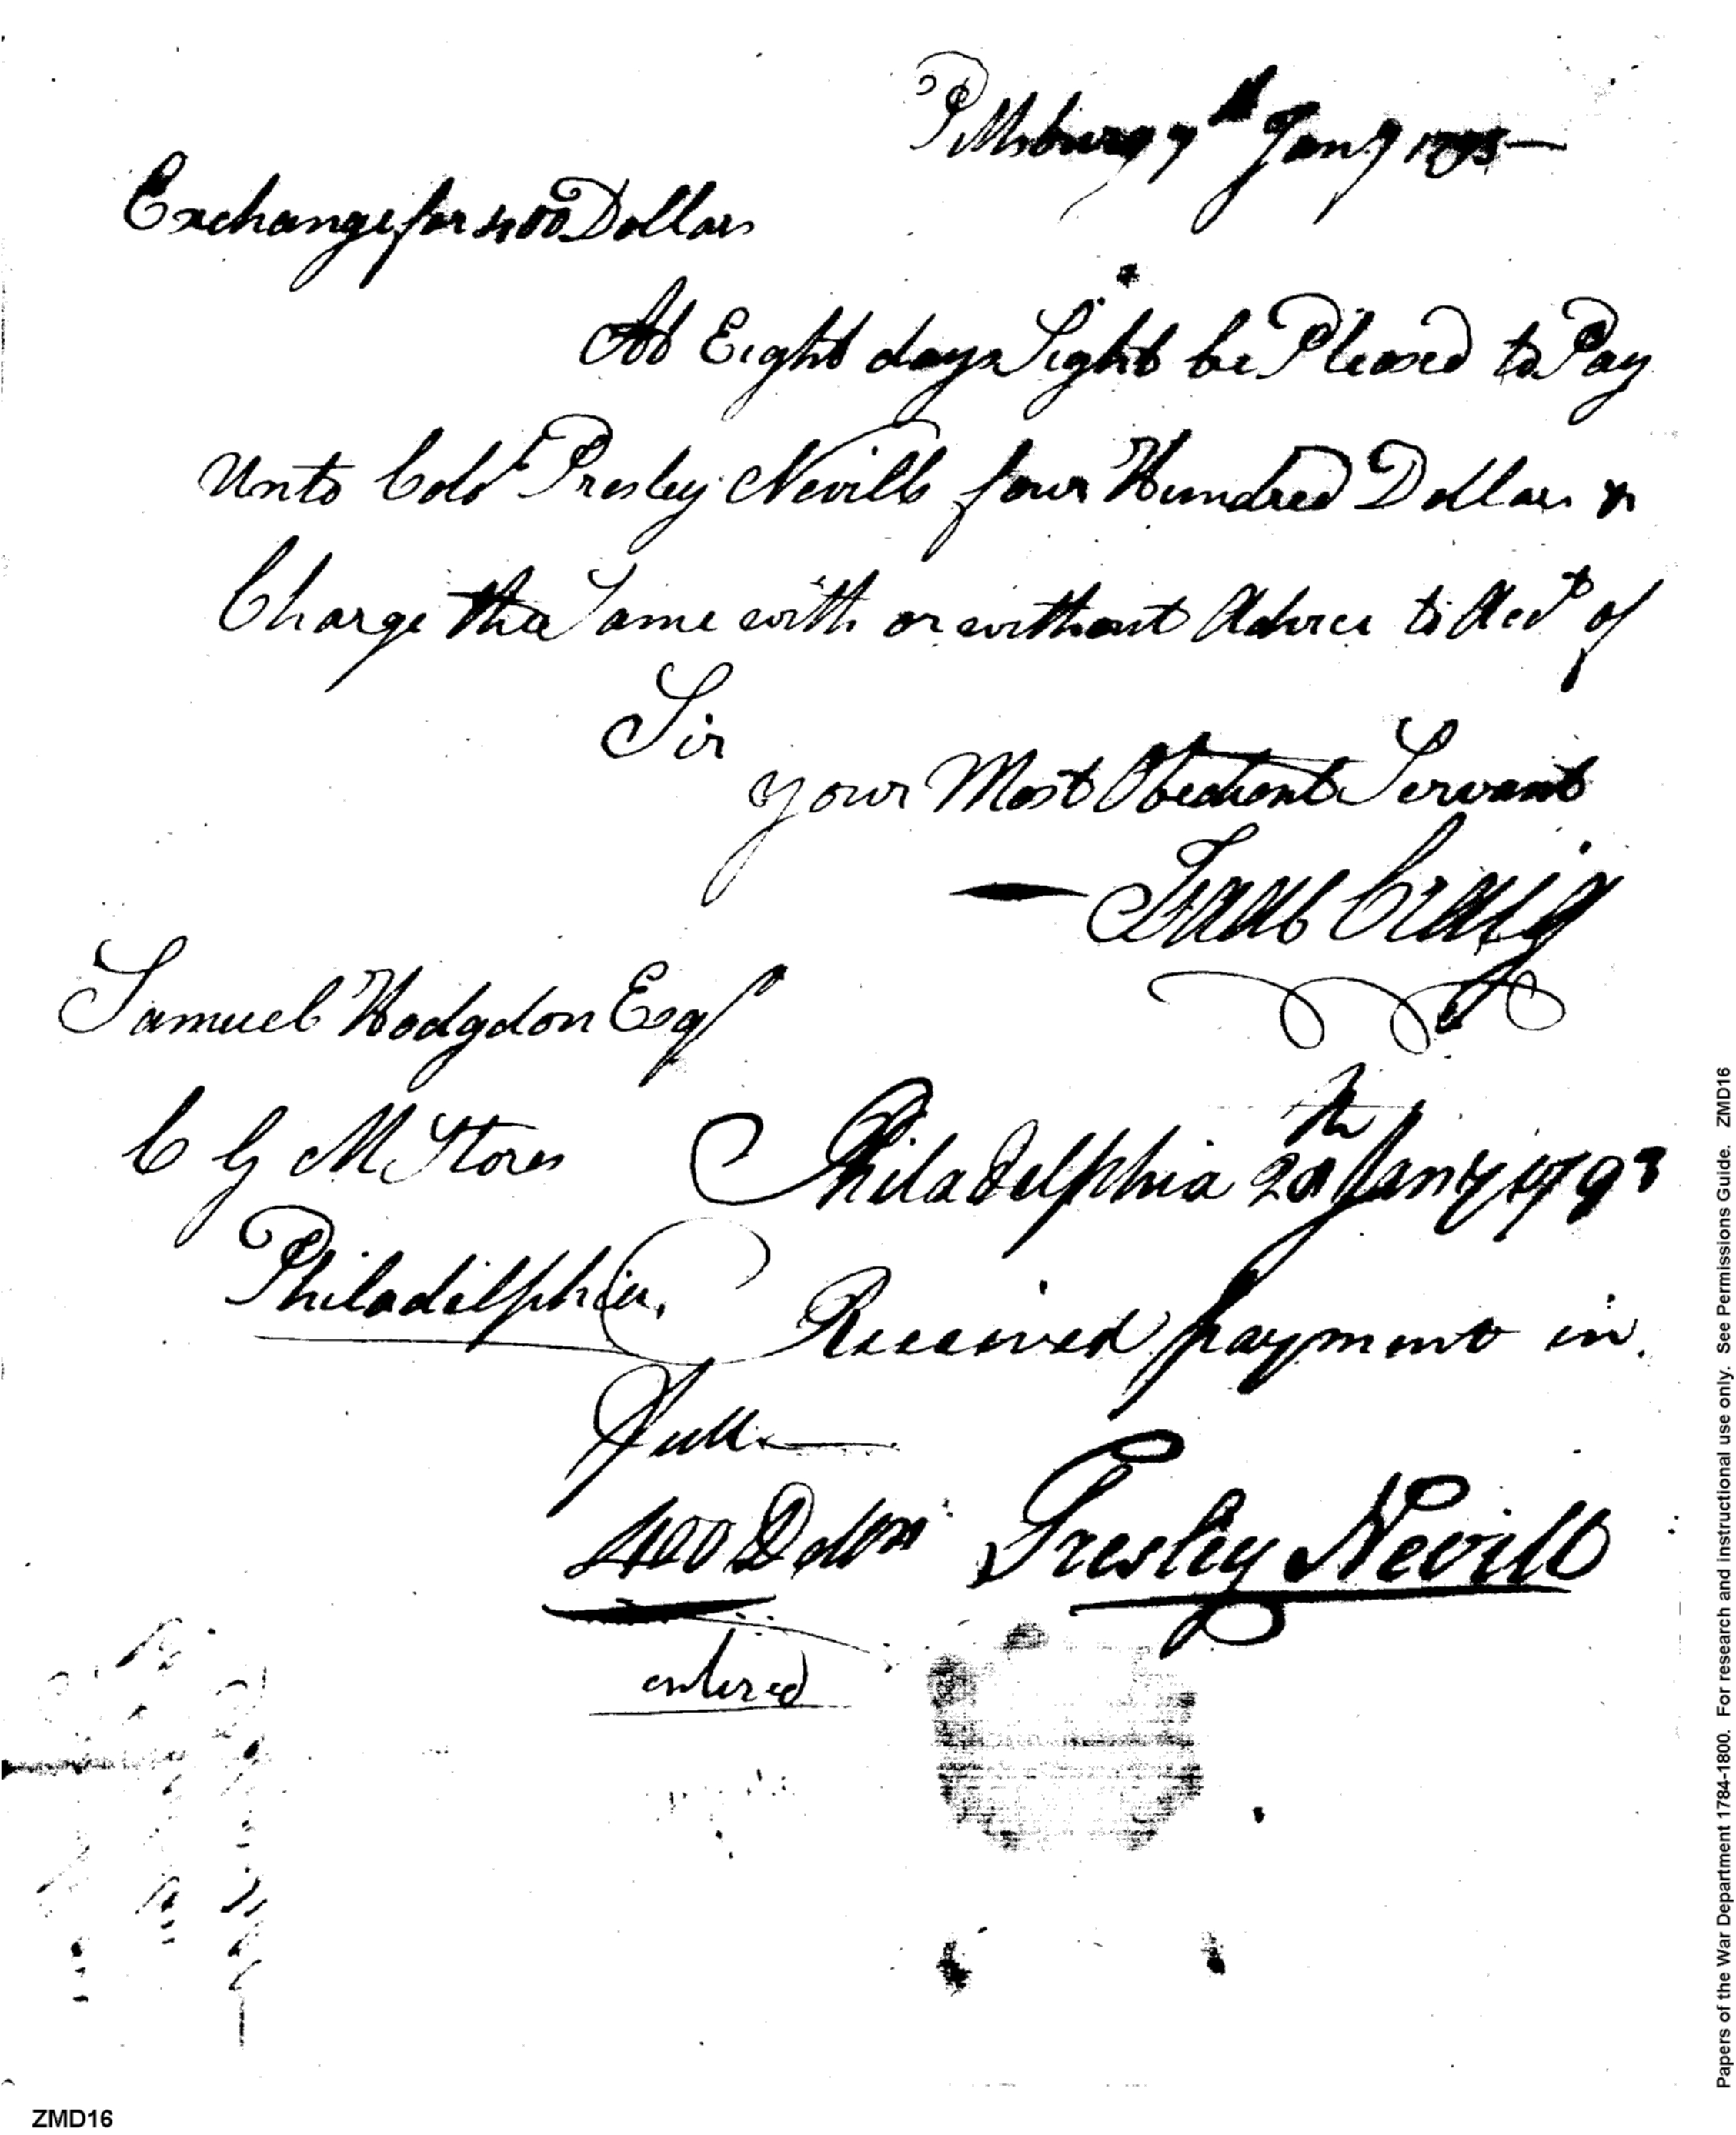 Pittsburg 9th Jany 1793
Exchange for 400 Dollars
At Eight days Sight be Pleased to Pay
Unto Colo Presley Nevill four Hundred Dollars &
Charge the Same with or without Advice to Acct of
Sir
your Most Obedient Servant
Isaac Craig
Samuel Hodgdon Esqr
C G M Stores
Philadelphia
Philadelphia 20th Jany 1793
Received payment in
full
400 Dollrs
Presley Nevill
entered
Papers of the War Department 1784-1800. For research and instructional use only. See Permissions Guide. ZMD16
ZMD16